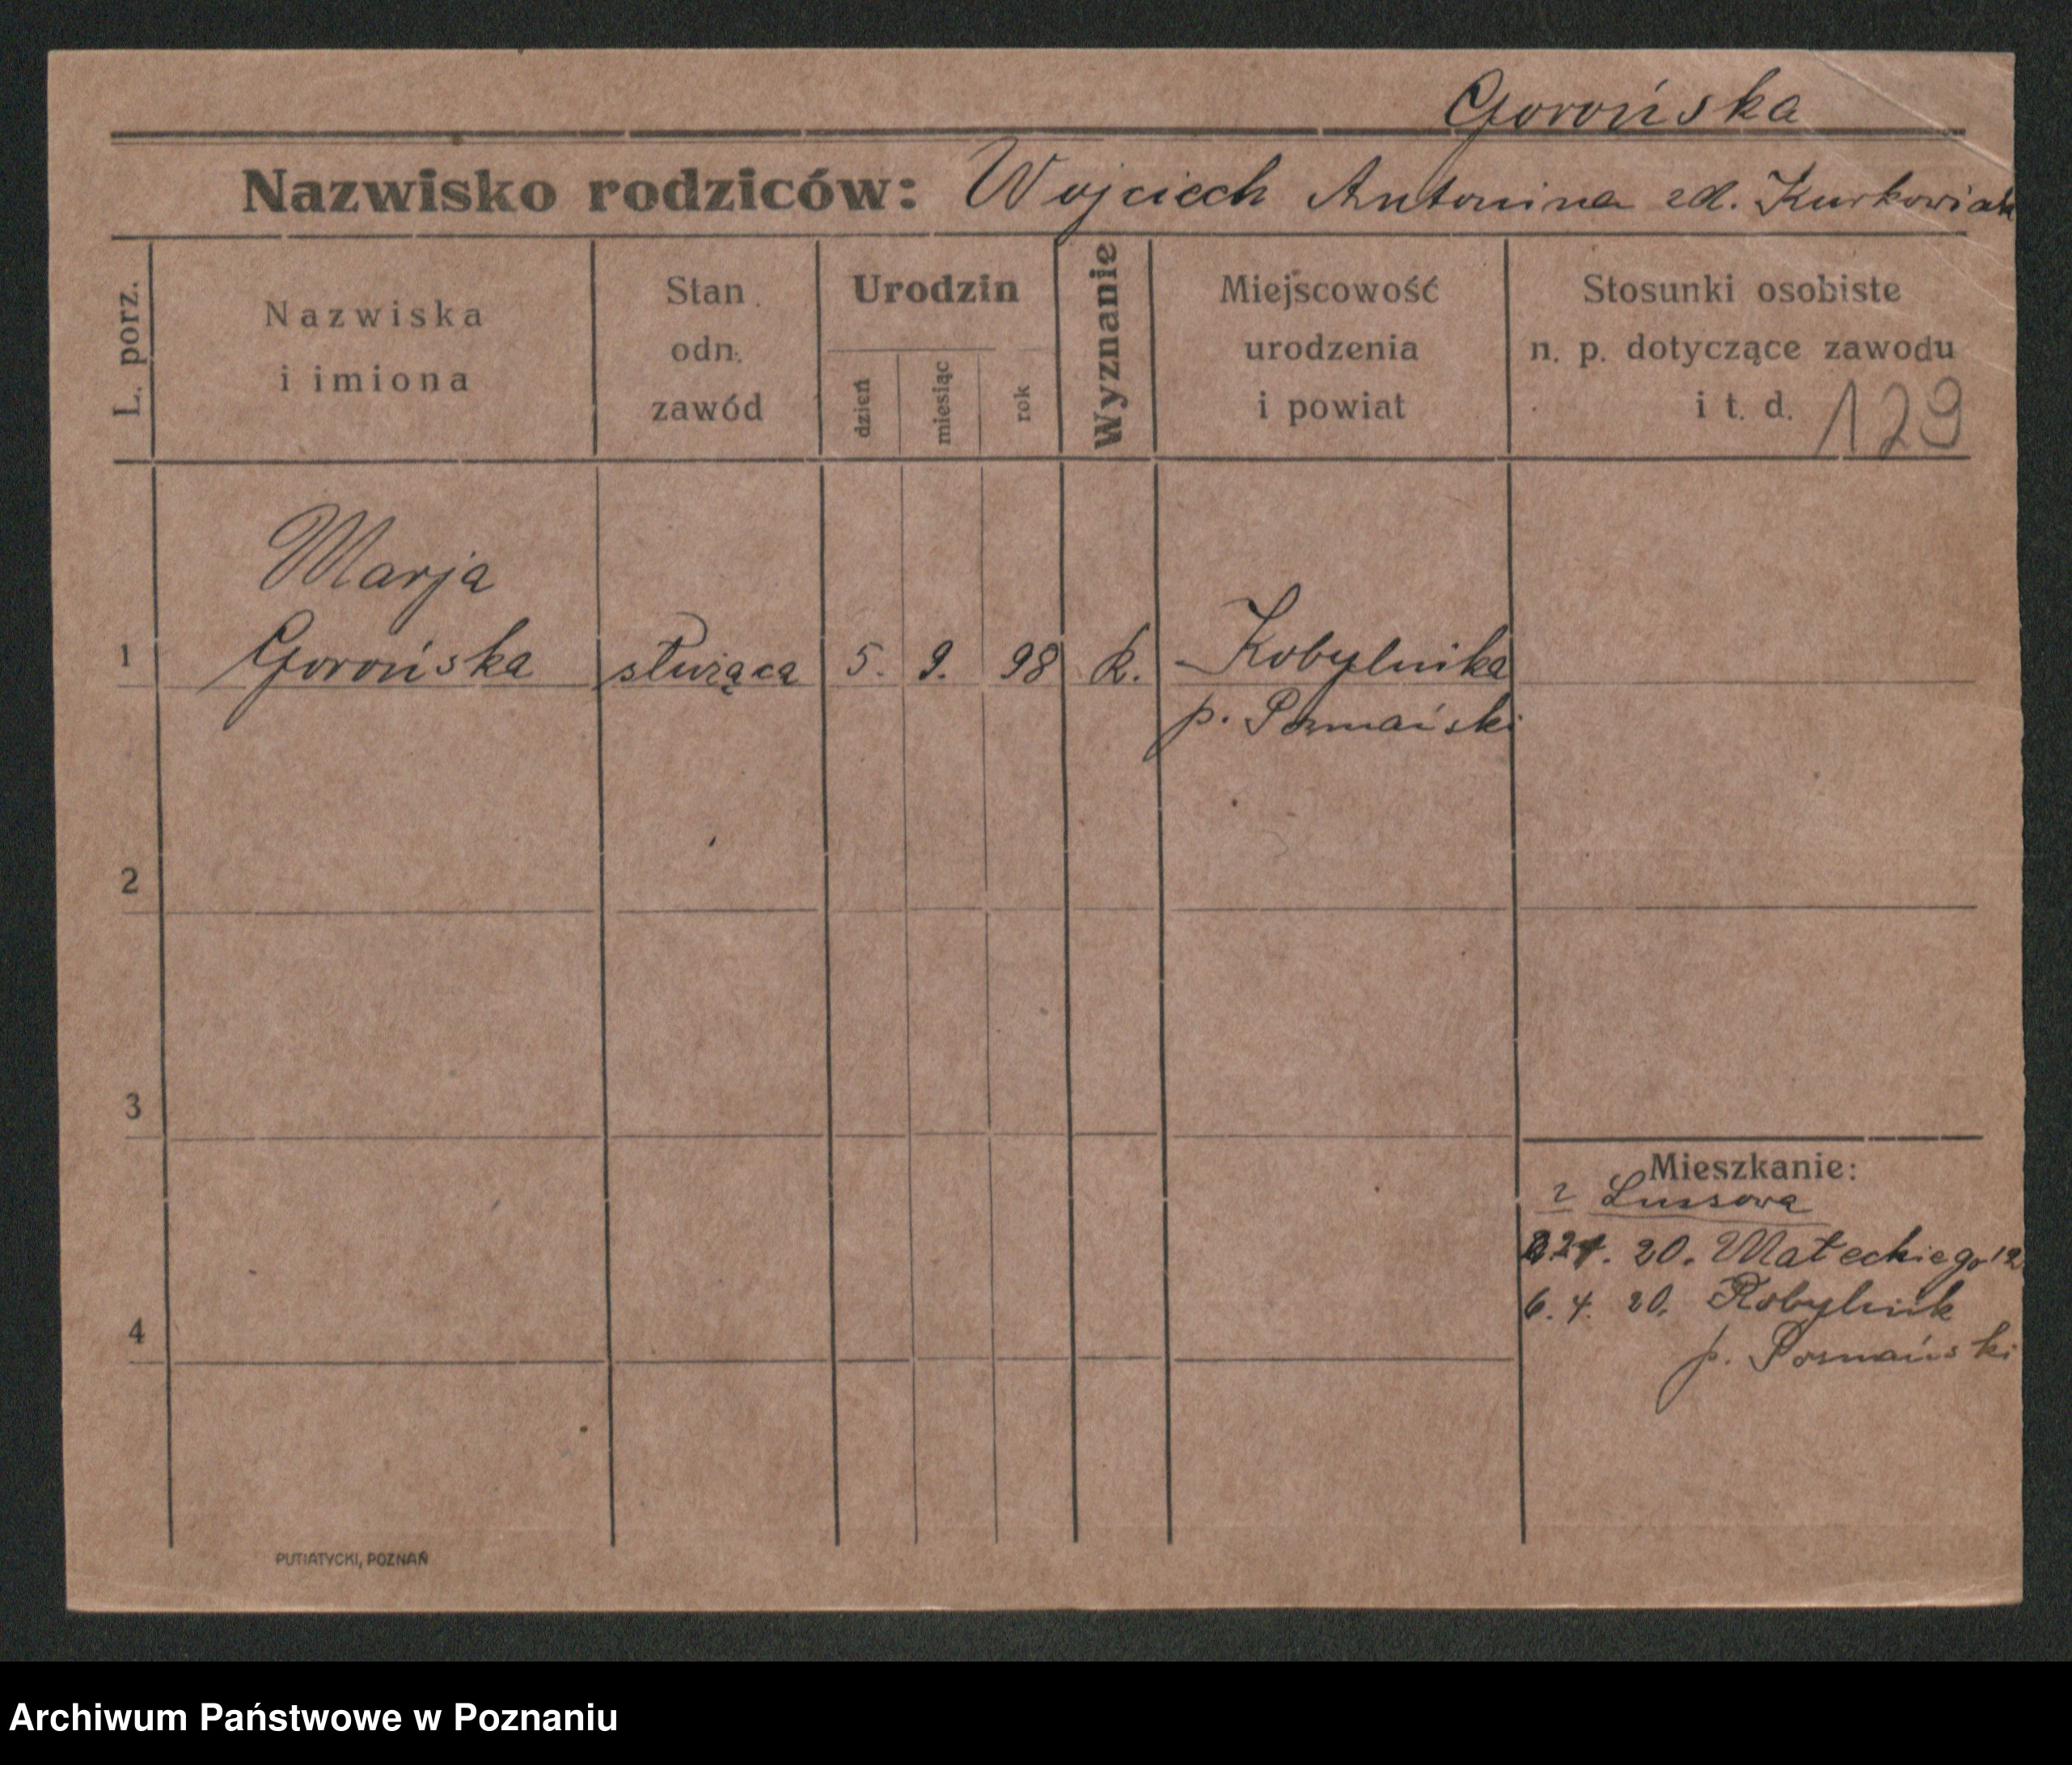 Gorońska
Nazwisko rodziców: Wojciech Antonina zd. Kurkowiak
L. porz.
Nazwiska
i imiona
Stan
odn.
zawód
Urodzin
dzień
miesiąc
rok
Wyznanie
Miejscowość
urodzenia
i powiat
Stosunki osobiste
n. p. dotyczące zawodu
i t. d. 129
Marja
1 Gorońska służąca 5. 9. 98 k. Kobylnika
p. Poznański
2
3
Mieszkanie:
z Lussowa
20. Małeckiego 12
6. 4. 20. Kobylnik
4
p. Poznański
PUTIATYCKI, POZNAŃ
Archiwum Państwowe w Poznaniu